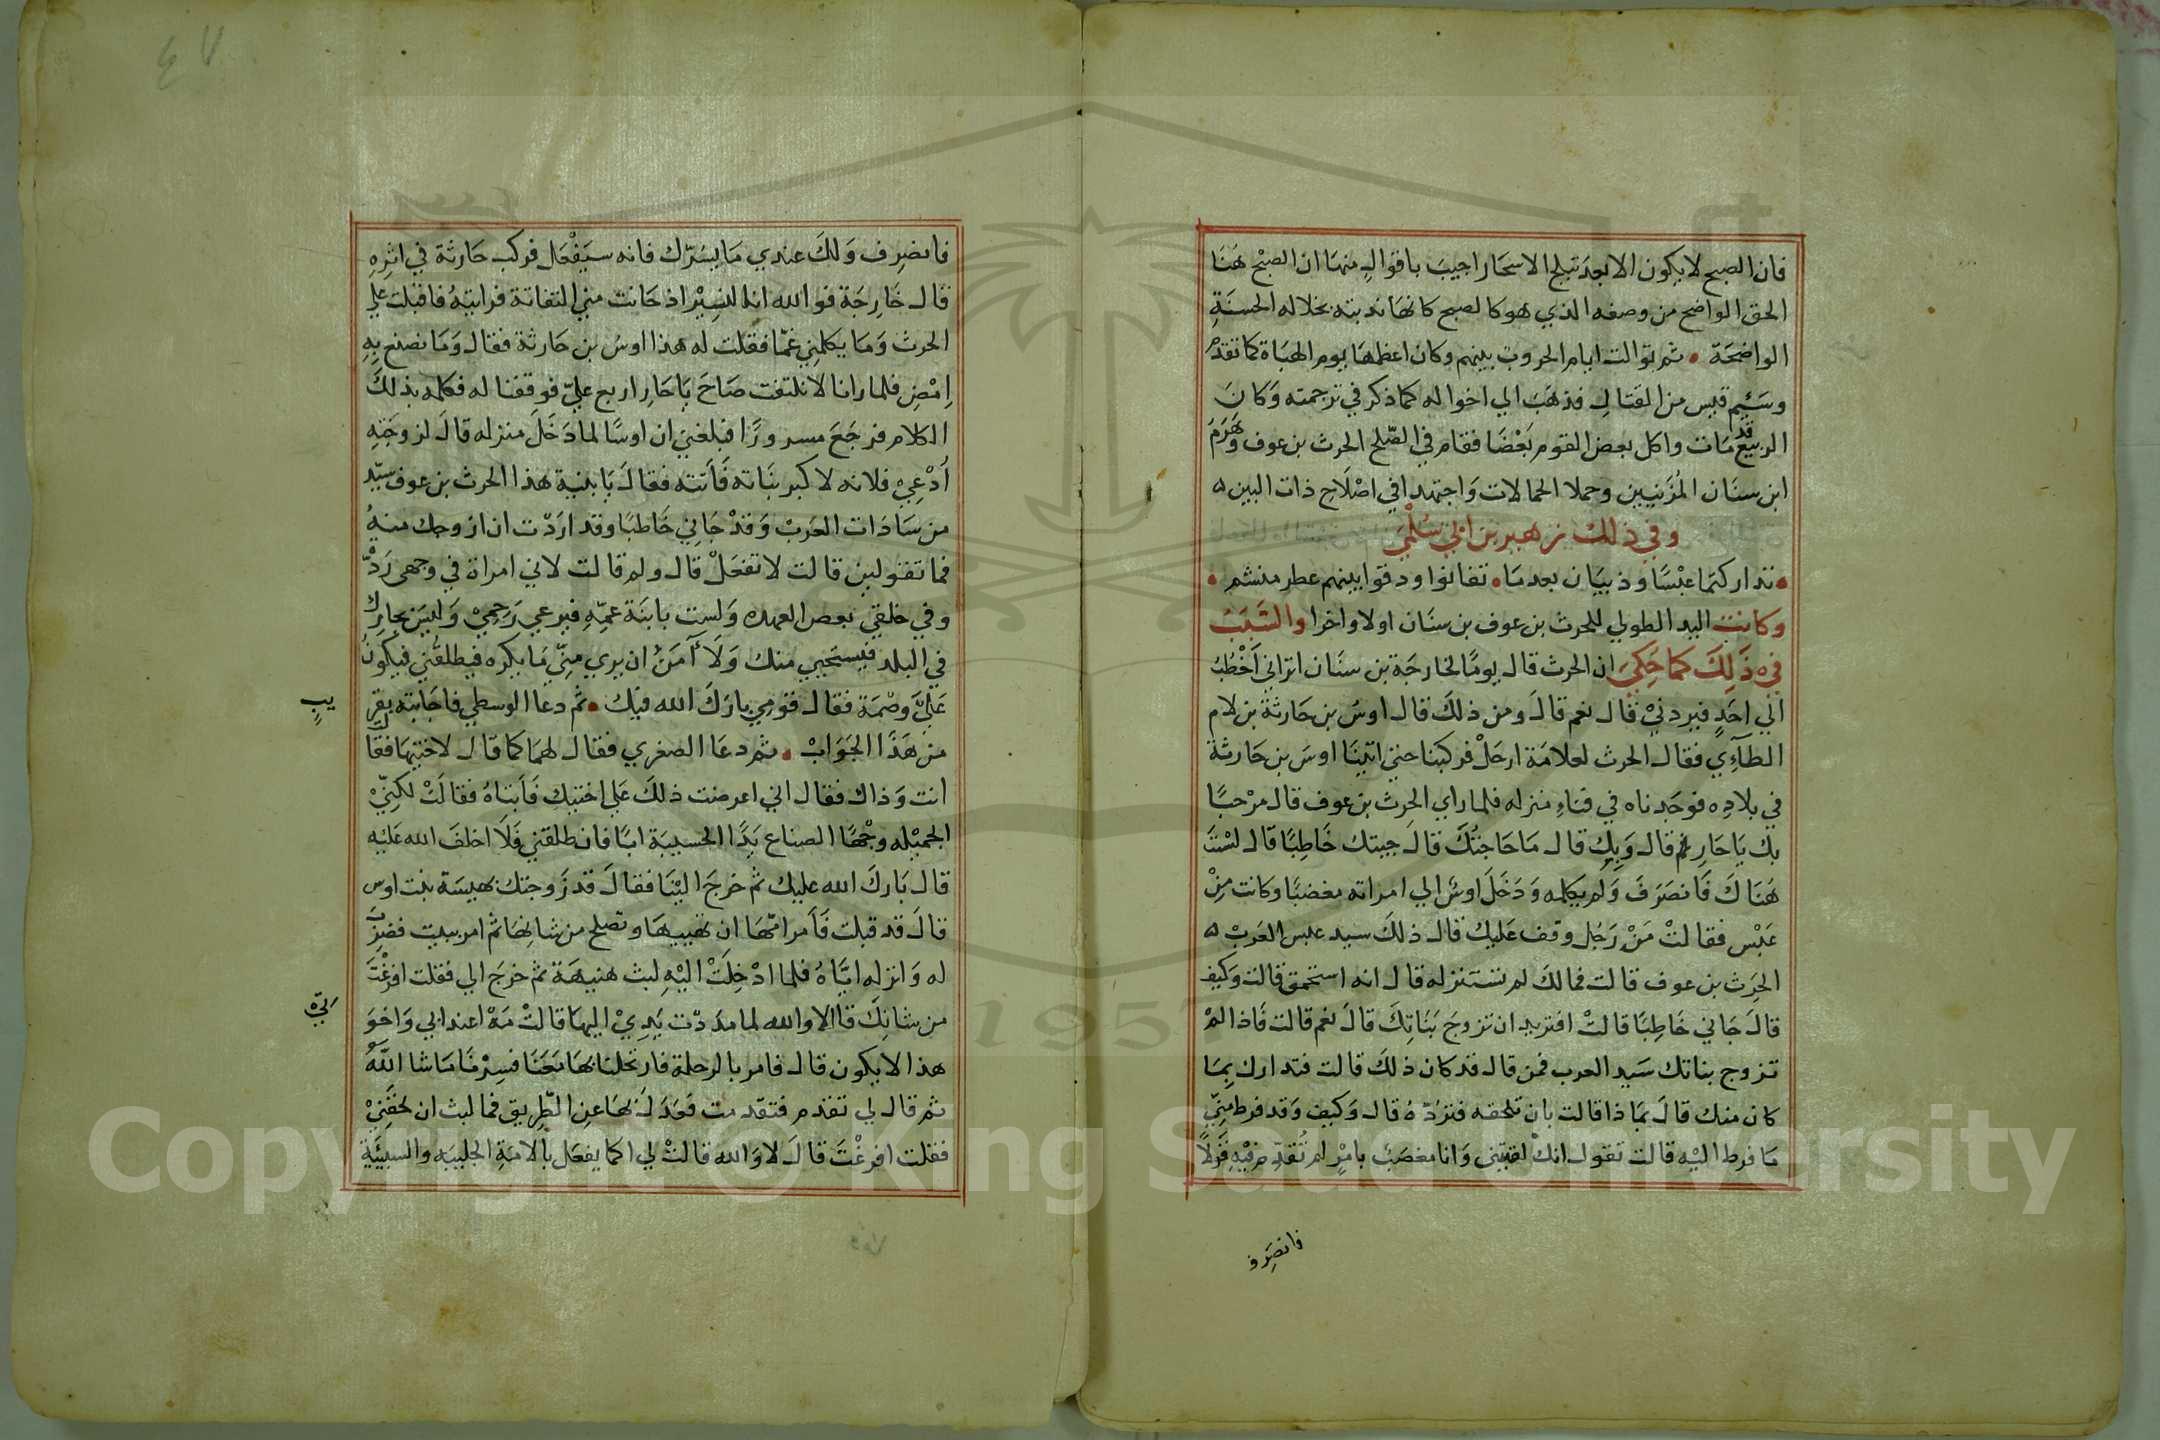 فان الصبح لا يكون الا بعد تبلج الاسحار اجيب باقوال منها ان الصبح هنا
الحق الواضح من وصفه الذي هو كالصبح كانها ندبته بخلاله الحسنة
الواضحة • ثم توالت ايام الحروب بينهم وكان اعظمها يوم الهباة كما تقدم
وسئيم قيس من القتال فذهب الي اخواله كما ذكر في ترجمته وكان
الربيع قد مات واكل بعض القوم بعضا فقام في الصلح الحرث بن عوف وهرم
ابن سنان المزنيين وحملا الحمالات واجتهدا في اصلاح ذات البين ه
وفي ذلك زهير بن ابي سلمي
• تداركتما عبسا وذبيان بعد ما • تفانوا ودقوا بينهم عطر منشم •
وكانت اليد الطولي للحرث بن عوف بن سنان اولا واخرا والسبب
في ذلك كما حكي ان الحرث قال يوما لخارجة بن سنان اتراني اخطب
الي احد فيردني قال نعم قال ومن ذلك قال اوس بن حارثة بن لام
الطآءي فقال الحرث لغلامه ارحل فركبنا حتي اتينا اوس بن حارثة
في بلاده فوجدناه في فناء منزله فلما راي الحرث بن عوف قال مرحبا
بك يا حار ثم قال وبك قال ما حاجتك قال جيتك خاطبا قال لست
هناك فانصرف ولم يكلمه ودخل اوس الي امراته مغضبا وكانت من
عبس فقالت من رجل وقف عليك قال ذلك سيد عبس العرب ه
الحرث بن عوف قالت فمالك لم تستنزله قال انه استحمق قالت وكيف
قال جاني خاطبا قالت افتريد ان تزوج بناتك قال نعم قالت فاذا لم
تزوج بناتك سيد العرب فمن قال قد كان ذلك قالت فتدارك بما
كان منك قال بماذا قالت بان تلحقه فترده قال وكيف وقد فرط مني
ما فرط اليه قالت تقول انك لقيتني وانا مغضب بامر لم تقدم فيه قولا
فانصرف
فانصرف ولك عندي ما يسرك فانه سيفعل فركب حارثة في اثره
قال خارجة فوالله انا لنسير اذ حانت مني التفاتة فرايته فاقبلت علي
الحرث وما يكلمني غما فقلت له هذا اوس بن حارثة فقال وما نصنع به
امض فلما رانا لا نلتفت صاح يا حار اربع علي فوقفنا له فكلمه بذلك
الكلام فرجع مسرورا فبلغني ان اوسا لما دخل منزله قال لزوجته
ادعي فلانه لاكبر بناته فاتته فقال يا بنية هذا الحرث بن عوف سيد
من سادات العرب وقد جاني خاطبا وقد اردت ان ازوجك منه
فما تقولين قالت لا تفعل قال ولم قالت لاني امراة في وجهي ردة
وفي خلقي بعض العهده ولست بابنة عمه فيرعي رحمي وليس بجارك
في البلد فيستحيي منك ولا آمن ان يري مني ما يكره فيطلقني فيكون
علي وصمة فقال قومي بارك الله فيك • ثم دعا الوسطي فاجابته بقر
يب
من هذا الجواب • ثم دعا الصغري فقال لهما كما قال لاختيها فقال
انت وذاك فقال اني اعرضت ذلك علي اختيك فابتاه فقالت لكني
الجميله وجها الصناع يدا الحسيبة ابا فان طلقني فلا اخلف الله عليه
قال بارك الله عليك ثم خرج الينا فقال قد زوجتك بهيسة بنت اوس
قال قد قبلت فامر امها ان تهييها وتصلح من شانها ثم امر ببيت فضرب
له وانزله اياه فلما ادخلت اليه لبث هنيهة ثم خرج الي فقلت افرغت
من شانك قال لا والله لما مددت يدي اليها قالت مه اعند ابي واخو
تي
هذا لا يكون قال فامر بالرحلة فارتحلنا بها معنا فسرنا ما شا الله
ثم قال لي تقدم فتقدمت فعدل بها عن الطريق فما لبث ان لحقني
فقلت افرغت قال لا والله قالت لي اكما يفعل بالامة الجليبه والسبيئة
Copyright © King Saud University
1957